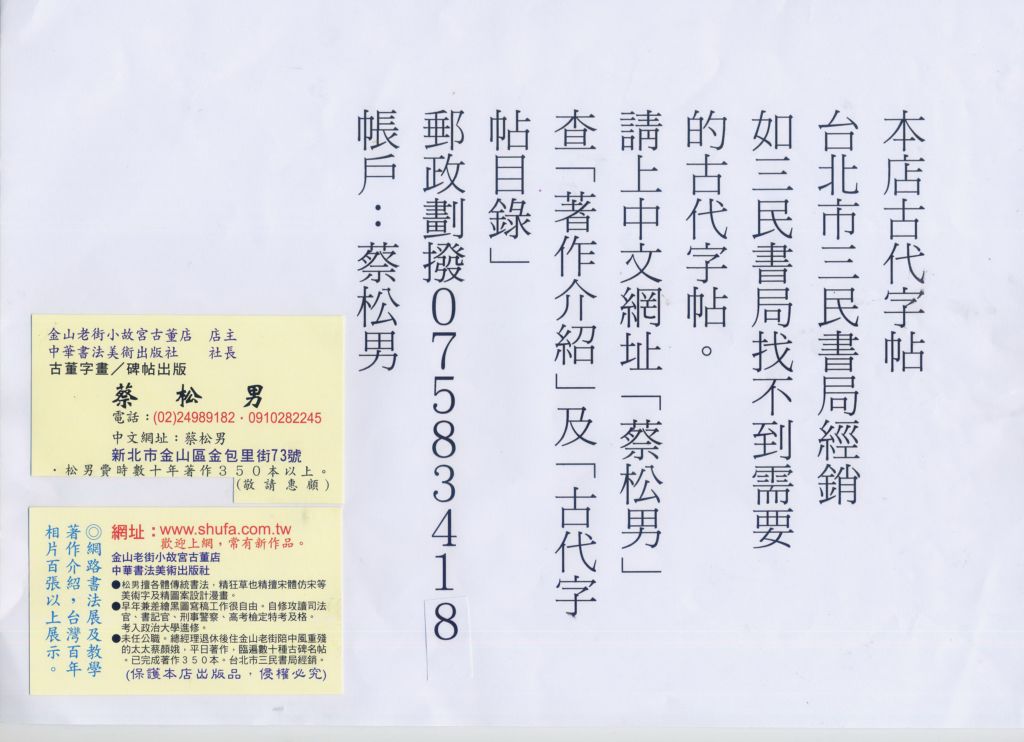 本店古代字帖
台北市三民書局經銷
如三民書局找不到需要
的古代字帖。
請上中文網址「蔡松男」
查「著作介紹」及「古代字
帖目錄」
郵政劃撥07583418
帳戶：蔡松男
金山老街小故宮古董店 店主
中華書法美術出版社 社長
古董字畫／碑帖出版
蔡 松 男
電話：(02)24989182．0910282245
中文網址：蔡松男
新北市金山區金包里街73號
．松男費時數十年著作３５０本以上。
(敬請惠顧)
◎網路書法展及教學
著作介紹，台灣百年
相片百張以上展示。
網址：www.shufa.com.tw
歡迎上網，常有新作。
金山老街小故宮古董店
中華書法美術出版社
●松男擅各體傳統書法，精狂草也精擅宋體仿宋等
美術字及精圖案設計漫畫。
●早年兼差繪黑圖寫稿工作很自由。自修攻讀司法
官、書記官、刑事警察、高考檢定特考及格。
考入政治大學進修。
●未任公職。總經理退休後住金山老街陪中風重殘
的太太蔡顏娥，平日著作，臨遍數十種古碑名帖
。已完成著作３５０本。台北市三民書局經銷。
(保護本店出版品，侵權必究)